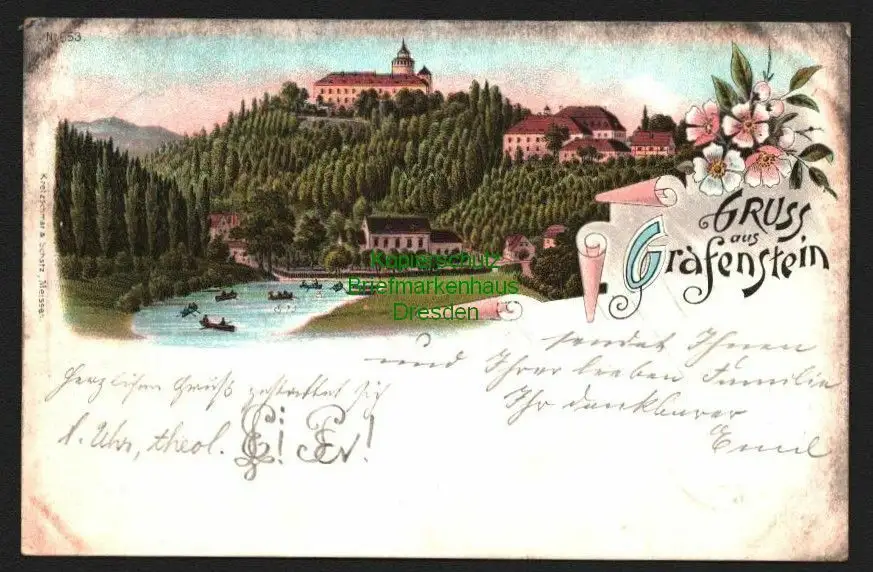 No 653.
Kretzschmar & Schatz, Meissen.
GRUSS
aus
Gräfenstein
Kopierschutz
Briefmarkenhaus
Dresden
und sendet Ihnen
Ihrer lieben Familie
Ihr dankbarer
Emil
Herzlichen Gruß gestattet sich
theol.